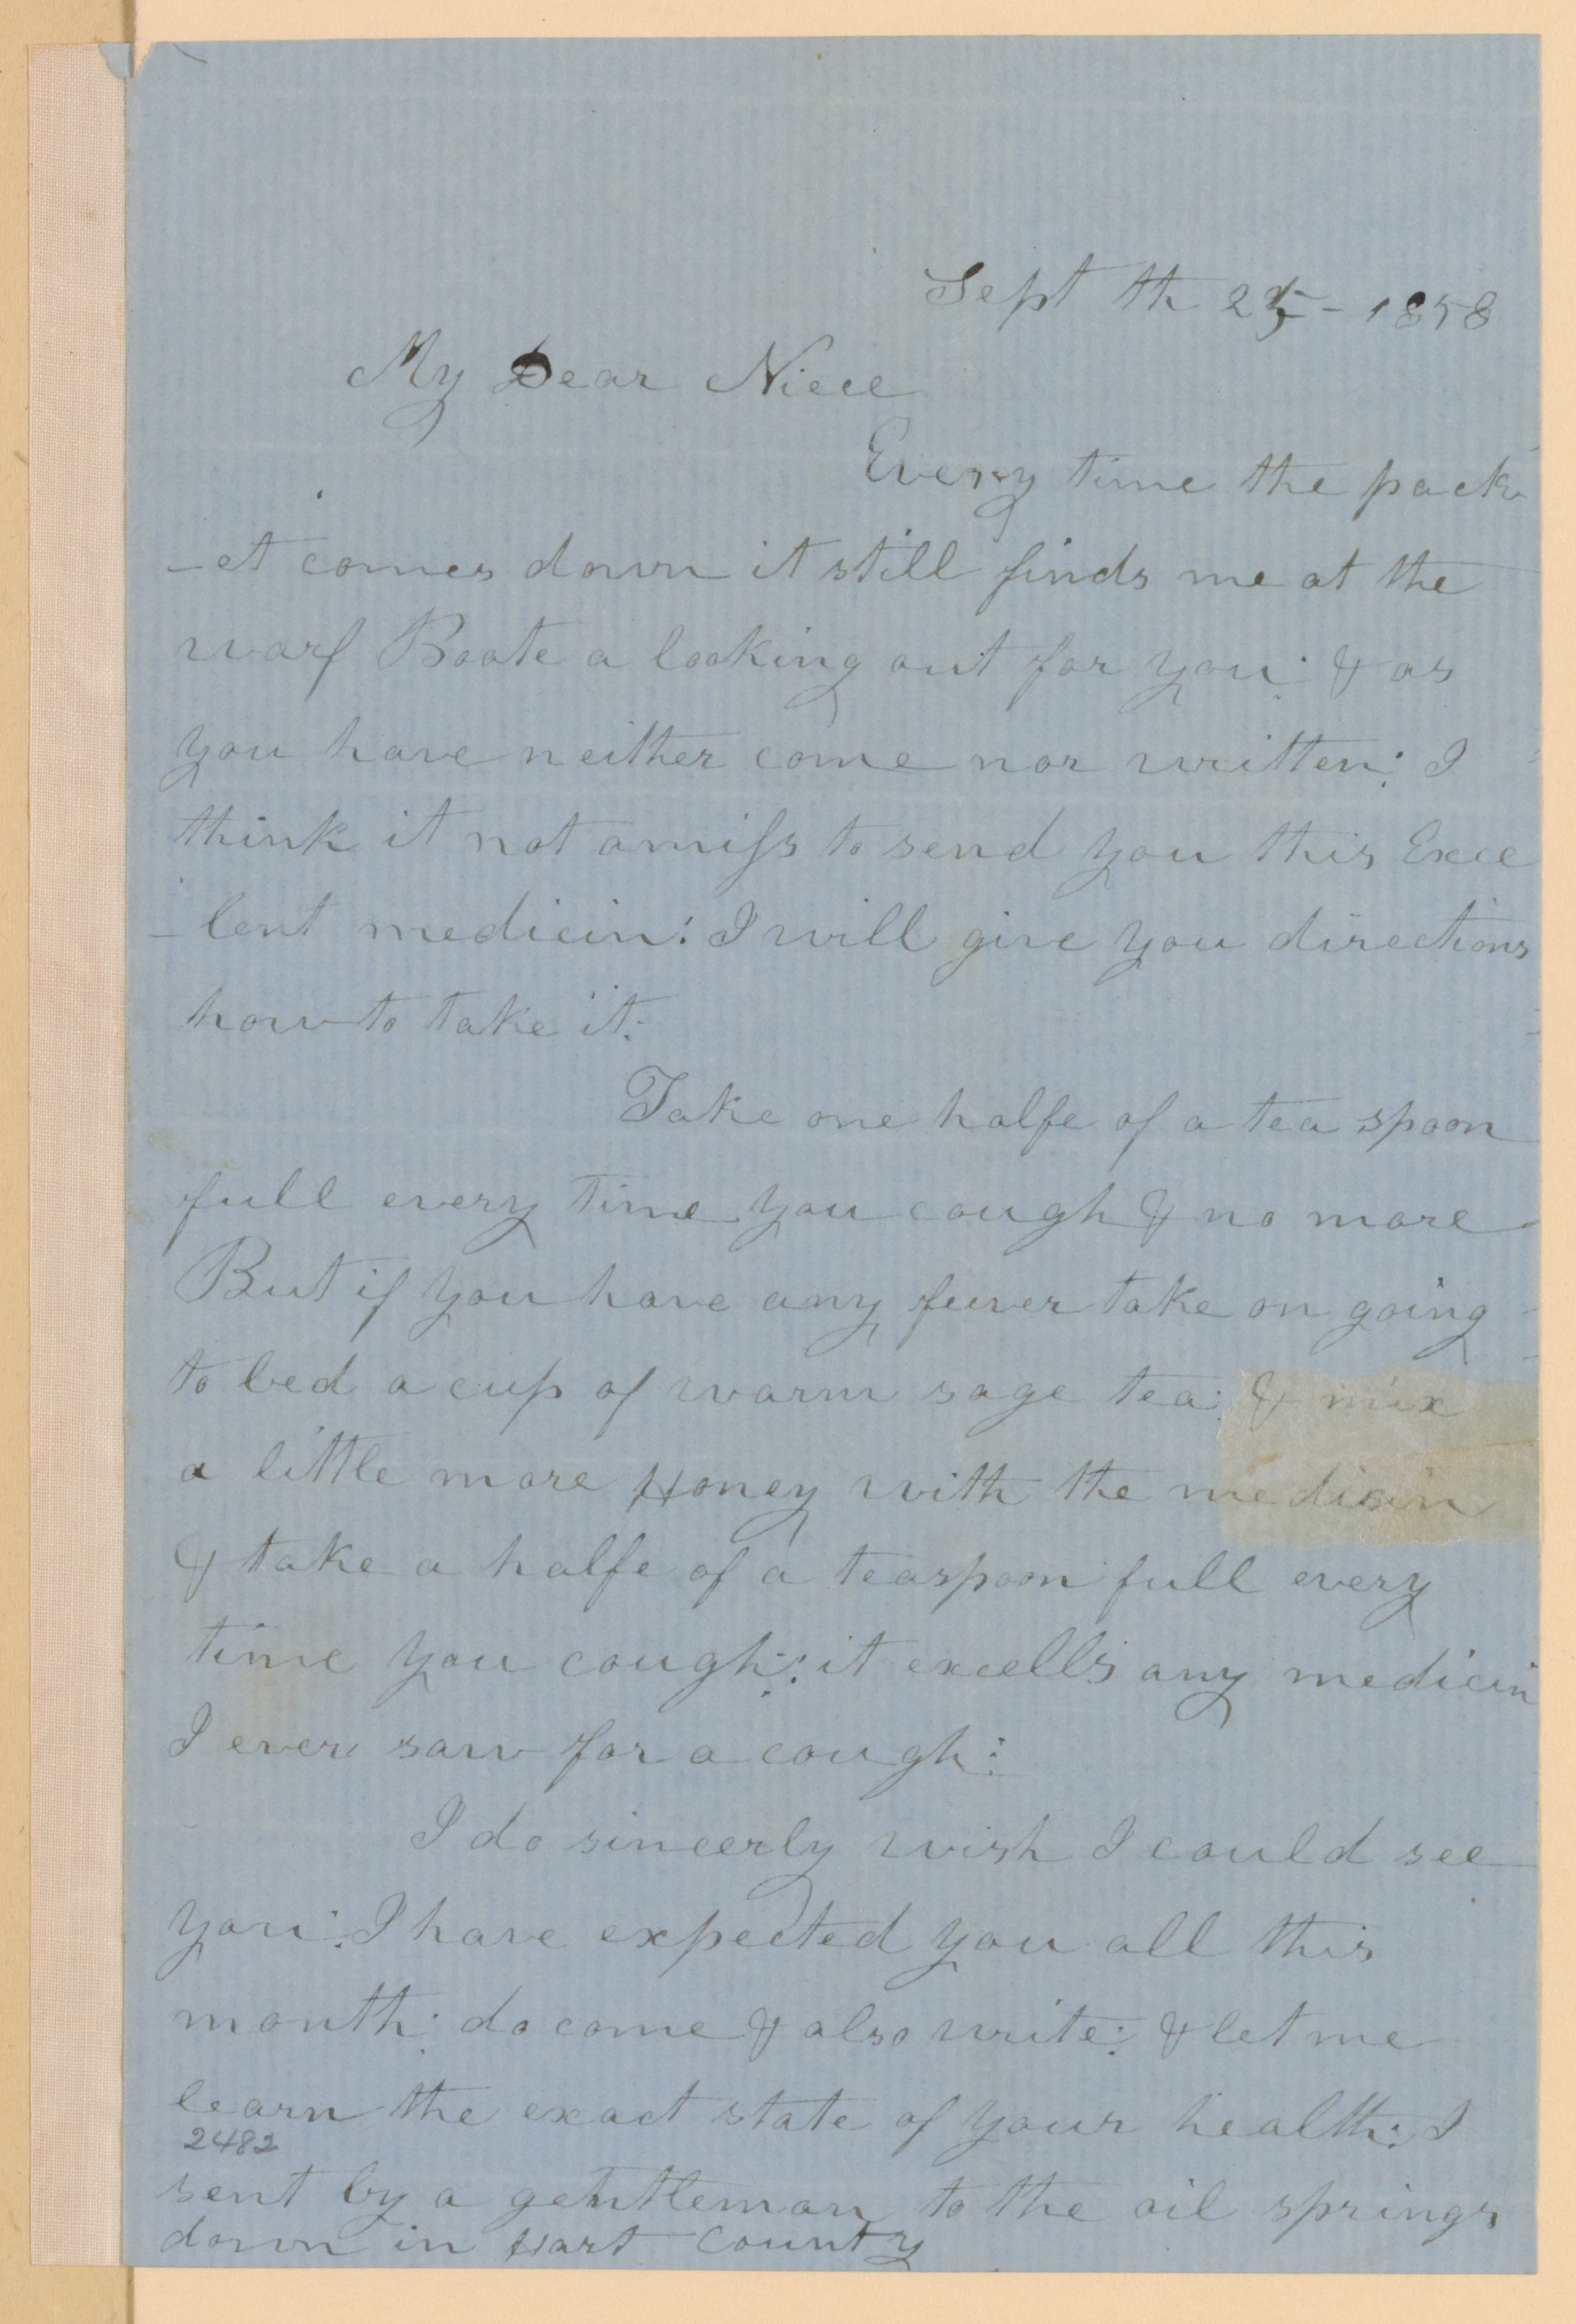 Sept th 25 - 1858
My Dear Niece
Every time the pack
-et comes down it still finds me at the
warf Boate a looking out for you: & as
you have neither come nor written: I
think it not amiss to send you this Exce
-lent medicin: I will give you directions
how to take it:
Take one halfe of a tea spoon
full every time you cough & no more
But if you have any fever take on going
to bed a cup of warm sage tea: & mix
a little more Honey with the medisin
& take a halfe of a teaspoon full every
time you cough: it excells any medicin
I ever saw for a cough:
I do sincerly wish I could see
you: I have expected you all this
month: do come & also write: & let me
learn the exact state of your health: I
2482
sent by a gentleman to the oil springs
down in Hart County